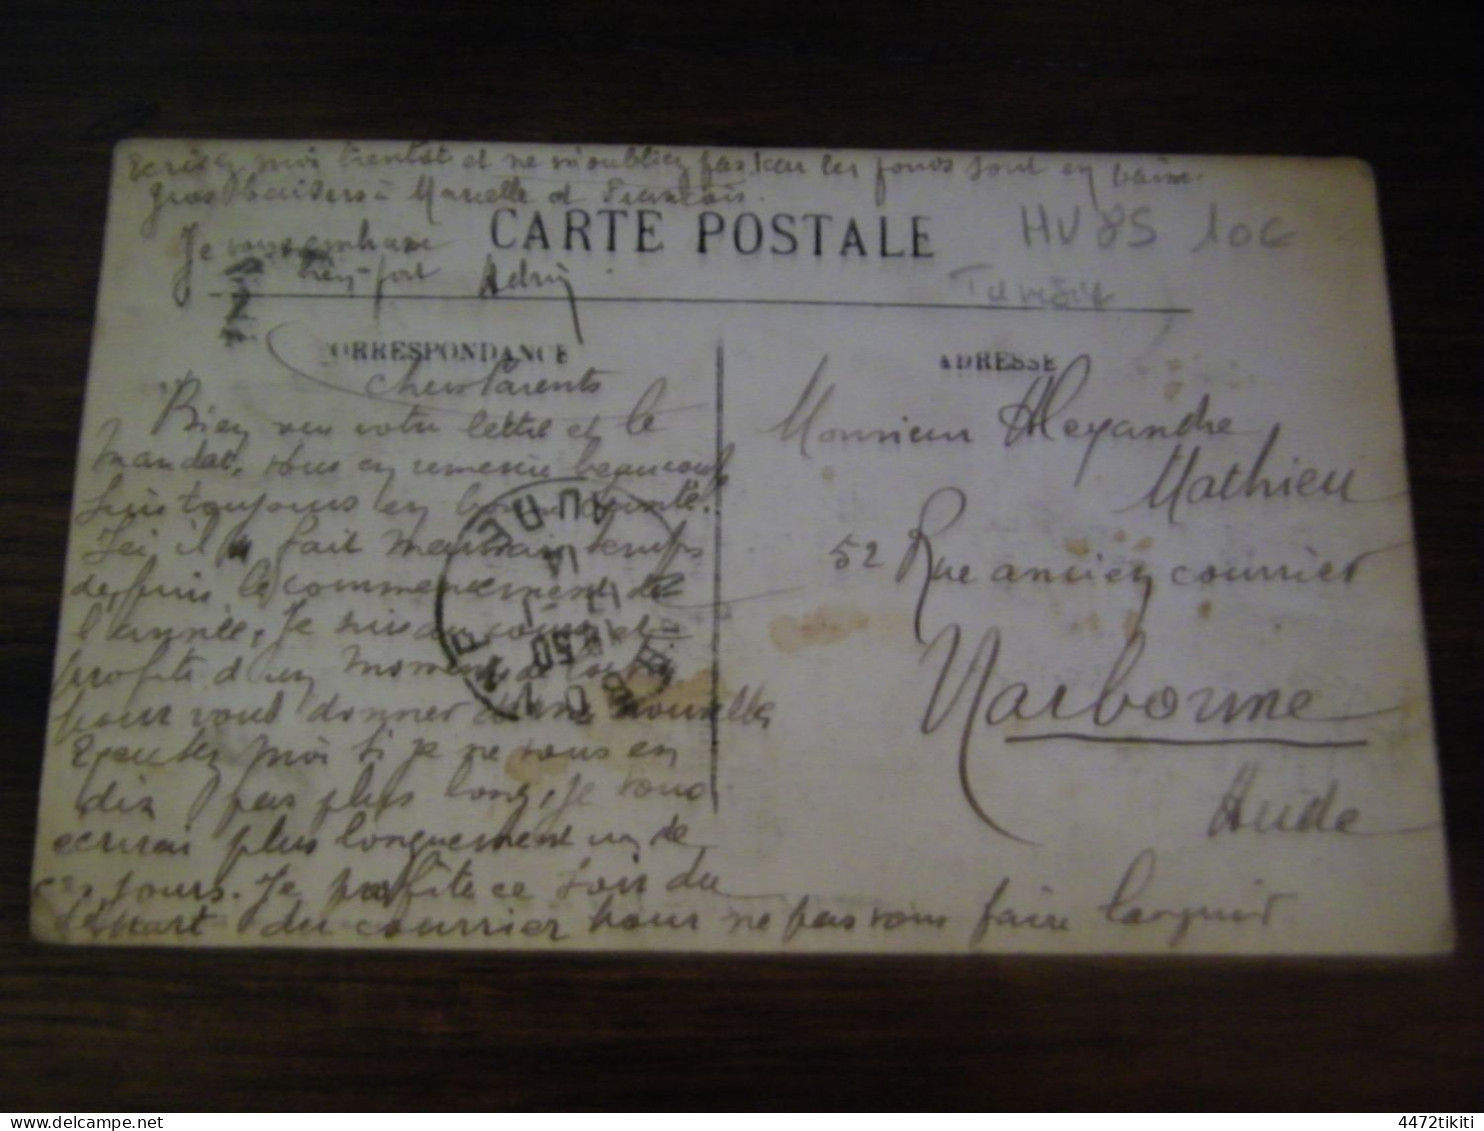 Ecrivez moi bientot et ne m'oubliez pas. car les fonds sont en baisse.
Gros baisers à Marcelle et François.
Je vous embrasse
bien fort Adrien
CARTE POSTALE
HV 85 10€
Tunisie
CORRESPONDANCE
ADRESSE
Chers Parents
Bien reçu votre lettre et le
mandat, vous en remercie beaucoup
suis toujours en bonne santé.
Ici, il fait mauvais temps
depuis le commencement de
l'année. Je suis au cours et
profite d'un moment de
pour vous donner de nouvelles
Excutez moi si je ne vous en
dix pas plus long, je vous
ecrirai plus longuement un de
ces jours. Je profite ce soir du
départ du courrier pour ne pas vous faire languir
Monsieur Alexandre
Mathieu
52 Rue ancien courrier
Narbonne
Aude
AUDE
17 -1
18 50
4472tikiti